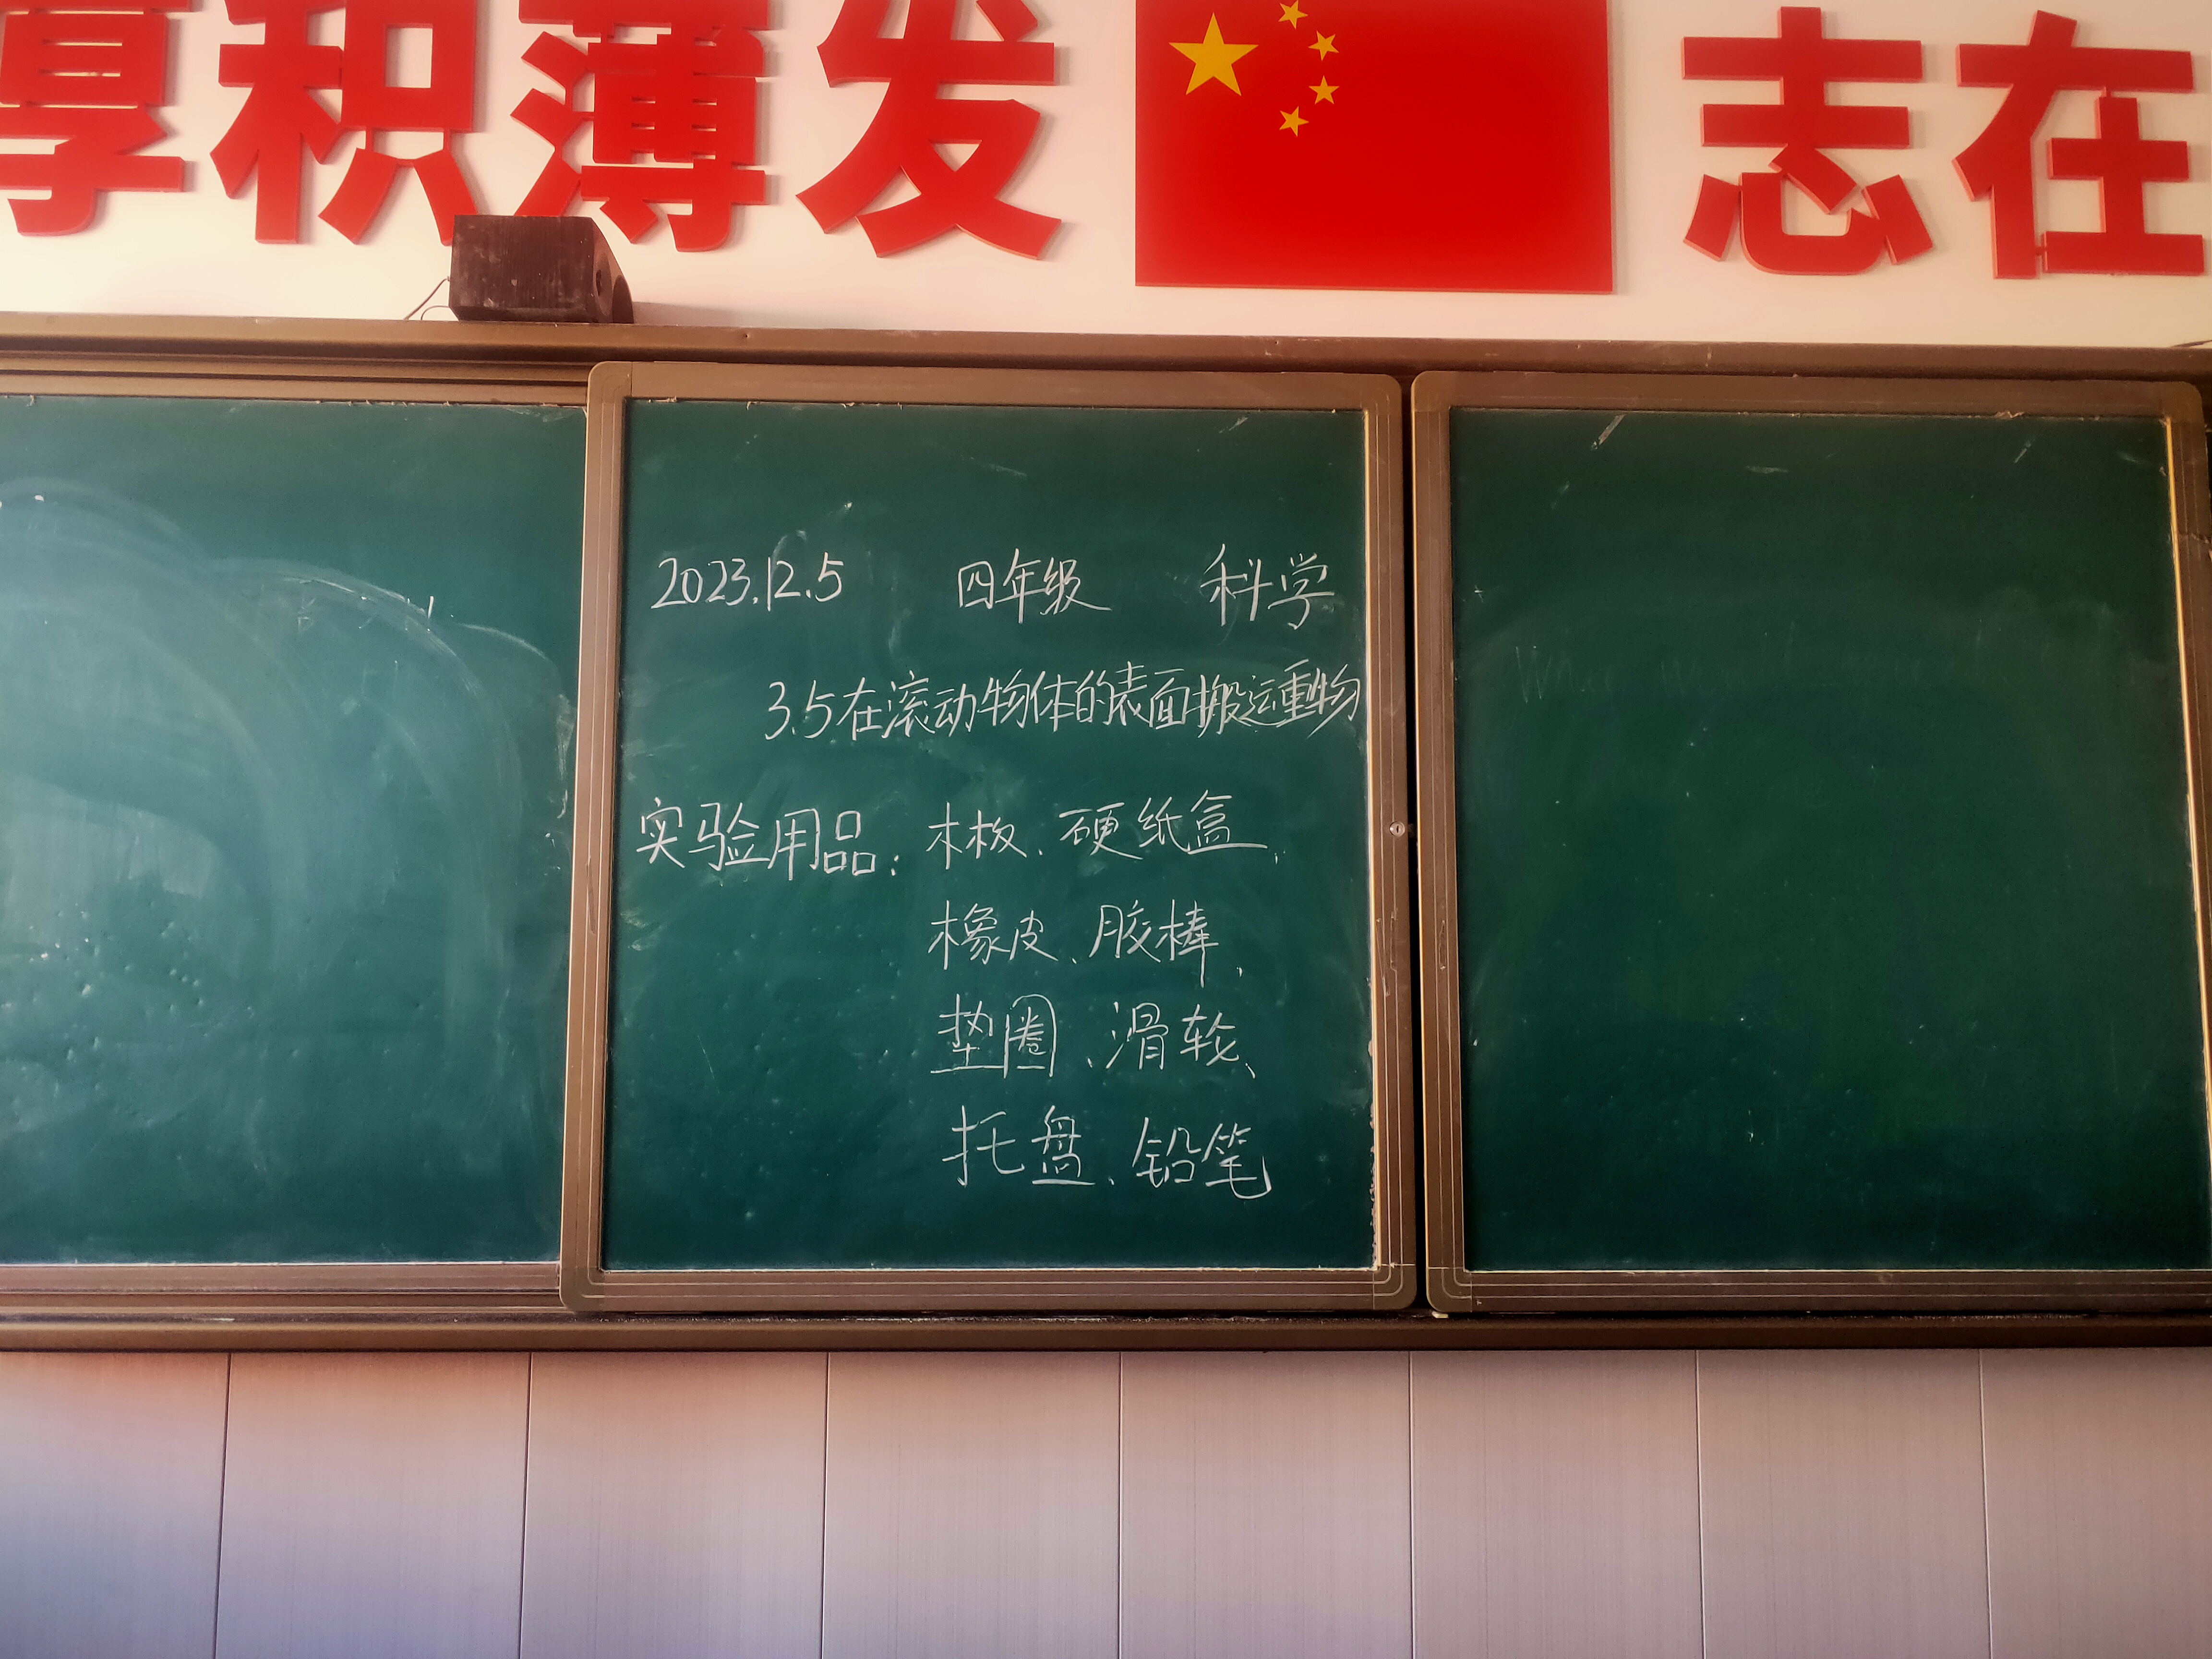 厚积薄发 志在
2023.12.5 四年级 科学
3.5在滚动物体的表面搬运重物
实验用品：木板、硬纸盒、
橡皮、胶棒、
垫圈、滑轮、
托盘、铅笔